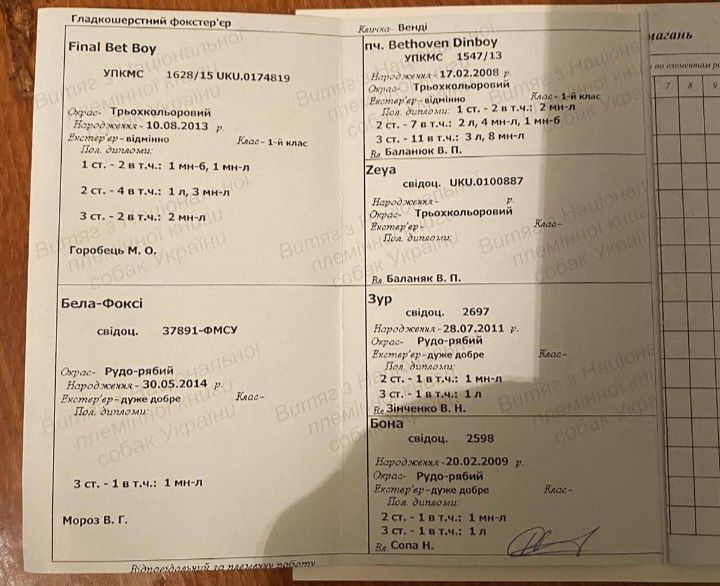 Гладкошерстний фокстер'єр
Кличка- Венді
Final Bet Boy
УПКМС 1628/15 UKU.0174819
Окрас- Трьохкольоровий
Народження - 10.08.2013 р.
Екстер'єр -відмінно Клас- 1-й клас
Пол. дипломи:
1 ст. - 2 в т.ч.: 1 мн-б, 1 мн-л
2 ст. - 4 в т.ч.: 1 л, 3 мн-л
3 ст. - 2 в т.ч.: 2 мн-л
Горобець М. О.
Бела-Фоксі
свідоц. 37891-ФМСУ
Окрас- Рудо-рябий
Народження - 30.05.2014 р.
Екстер'єр -дуже добре Клас-
Пол. дипломи:
3 ст. - 1 в т.ч.: 1 мн-л
Мороз В. Г.
пч. Bethoven Dinboy
УПКМС 1547/13
Народження - 17.02.2008 р.
Окрас- Трьохкольоровий
Екстер'єр -відмінно Клас- 1-й клас
Пол. дипломи: 1 ст. - 2 в т.ч.: 2 мн-л
2 ст. - 7 в т.ч.: 2 л, 4 мн-л, 1 мн-б
3 ст. - 11 в т.ч.: 3 л, 8 мн-л
Вл. Баланюк В. П.
Zeya
свідоц. UKU.0100887
Народження - р.
Окрас- Трьохкольоровий
Екстер'єр - Клас-
Пол. дипломи:
Вл. Баланяк В. П.
Зур
свідоц. 2697
Народження - 28.07.2011 р.
Окрас- Рудо-рябий
Екстер'єр -дуже добре Клас-
Пол. дипломи:
2 ст. - 1 в т.ч.: 1 мн-л
3 ст. - 1 в т.ч.: 1 л
Вл. Зінченко В. Н.
Бона
свідоц. 2598
Народження -20.02.2009 р.
Окрас- Рудо-рябий
Екстер'єр -дуже добре Клас-
Пол. дипломи:
2 ст. - 1 в т.ч.: 1 мн-л
3 ст. - 1 в т.ч.: 1 л
Вл. Сопа Н.
Відповідальний за племінну роботу
магань
по елементам
7 8 9
Витяг з Національної
племінної книги
собак України